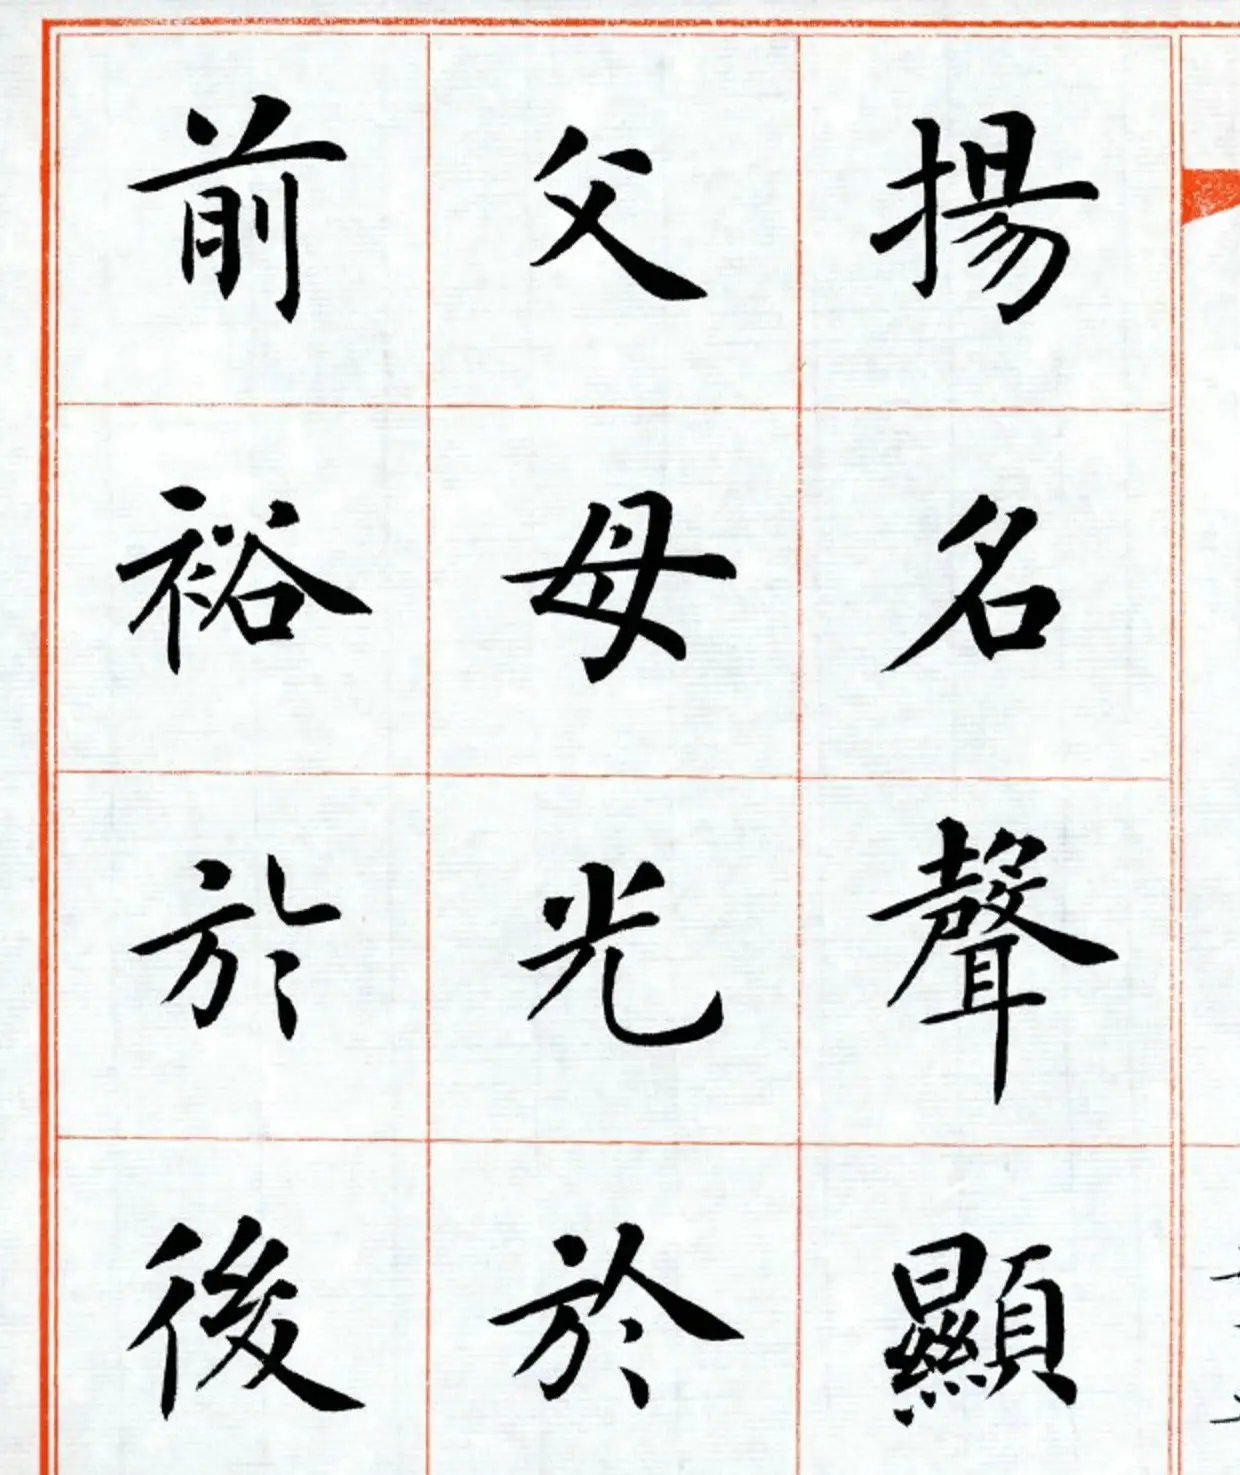 揚名聲顯
父母光於
前裕於後